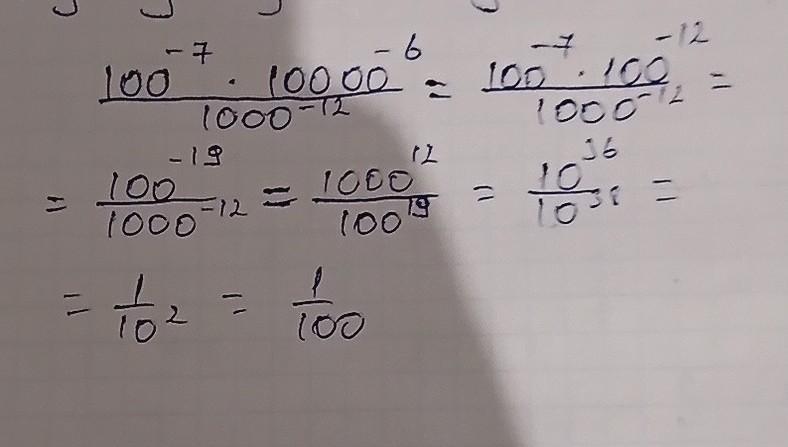 100⁻⁷ · 10000⁻⁶ / 1000⁻¹² = 100⁻⁷ · 100⁻¹² / 1000⁻¹² =
= 100⁻¹⁹ / 1000⁻¹² = 1000¹² / 100¹⁹ = 10³⁶ / 10³⁸ =
= 1 / 10² = 1 / 100